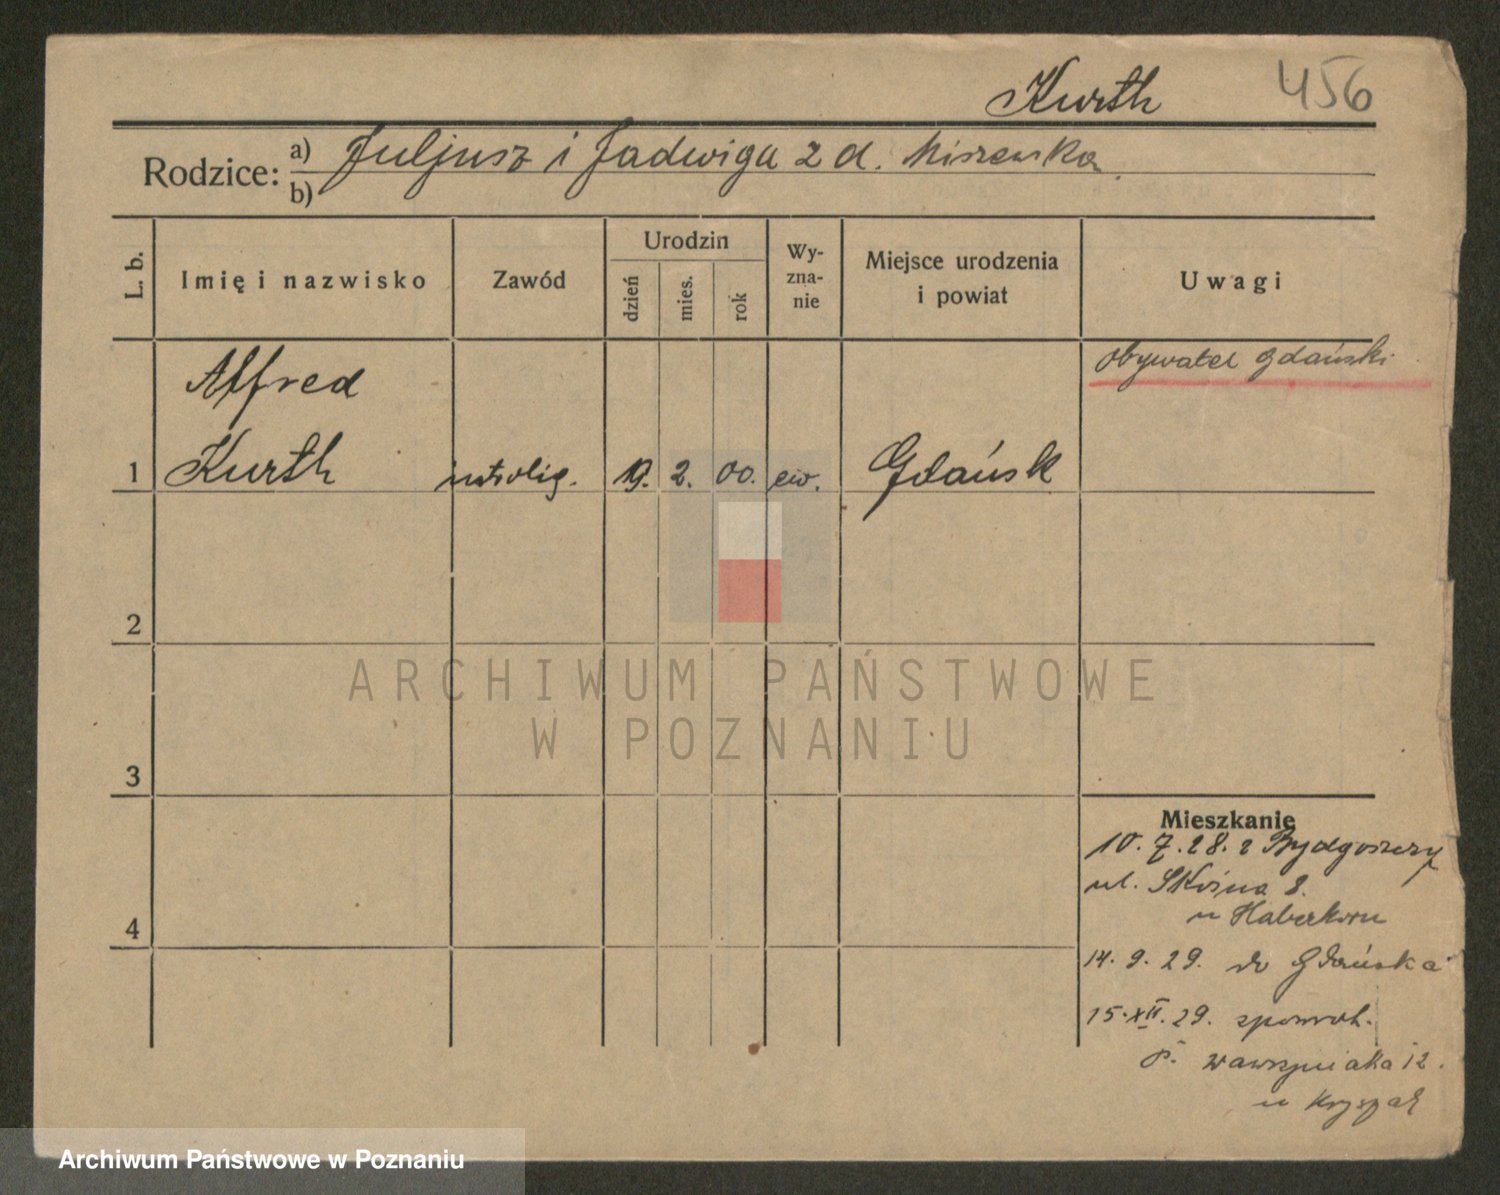 Kurth 456
Rodzice: a) Juljusz i Jadwiga z d. Miszewska
b)
L. b.
Imię i nazwisko
Zawód
Urodzin
dzień
mies.
rok
Wy-
zna-
nie
Miejsce urodzenia
i powiat
Uwagi
obywatel gdański
Alfred
1 Kurth introlig. 19. 2. 00. ew. Gdańsk
2
3
4
Mieszkanie
10.7.28. z Bydgoszczy
ul. 8.
u Haberkorn
14.9.29. do Gdańska
15.XII.29. spowrot.
Wawrzyniaka 12.
u
ARCHIWUM PAŃSTWOWE
W POZNANIU
Archiwum Państwowe w Poznaniu